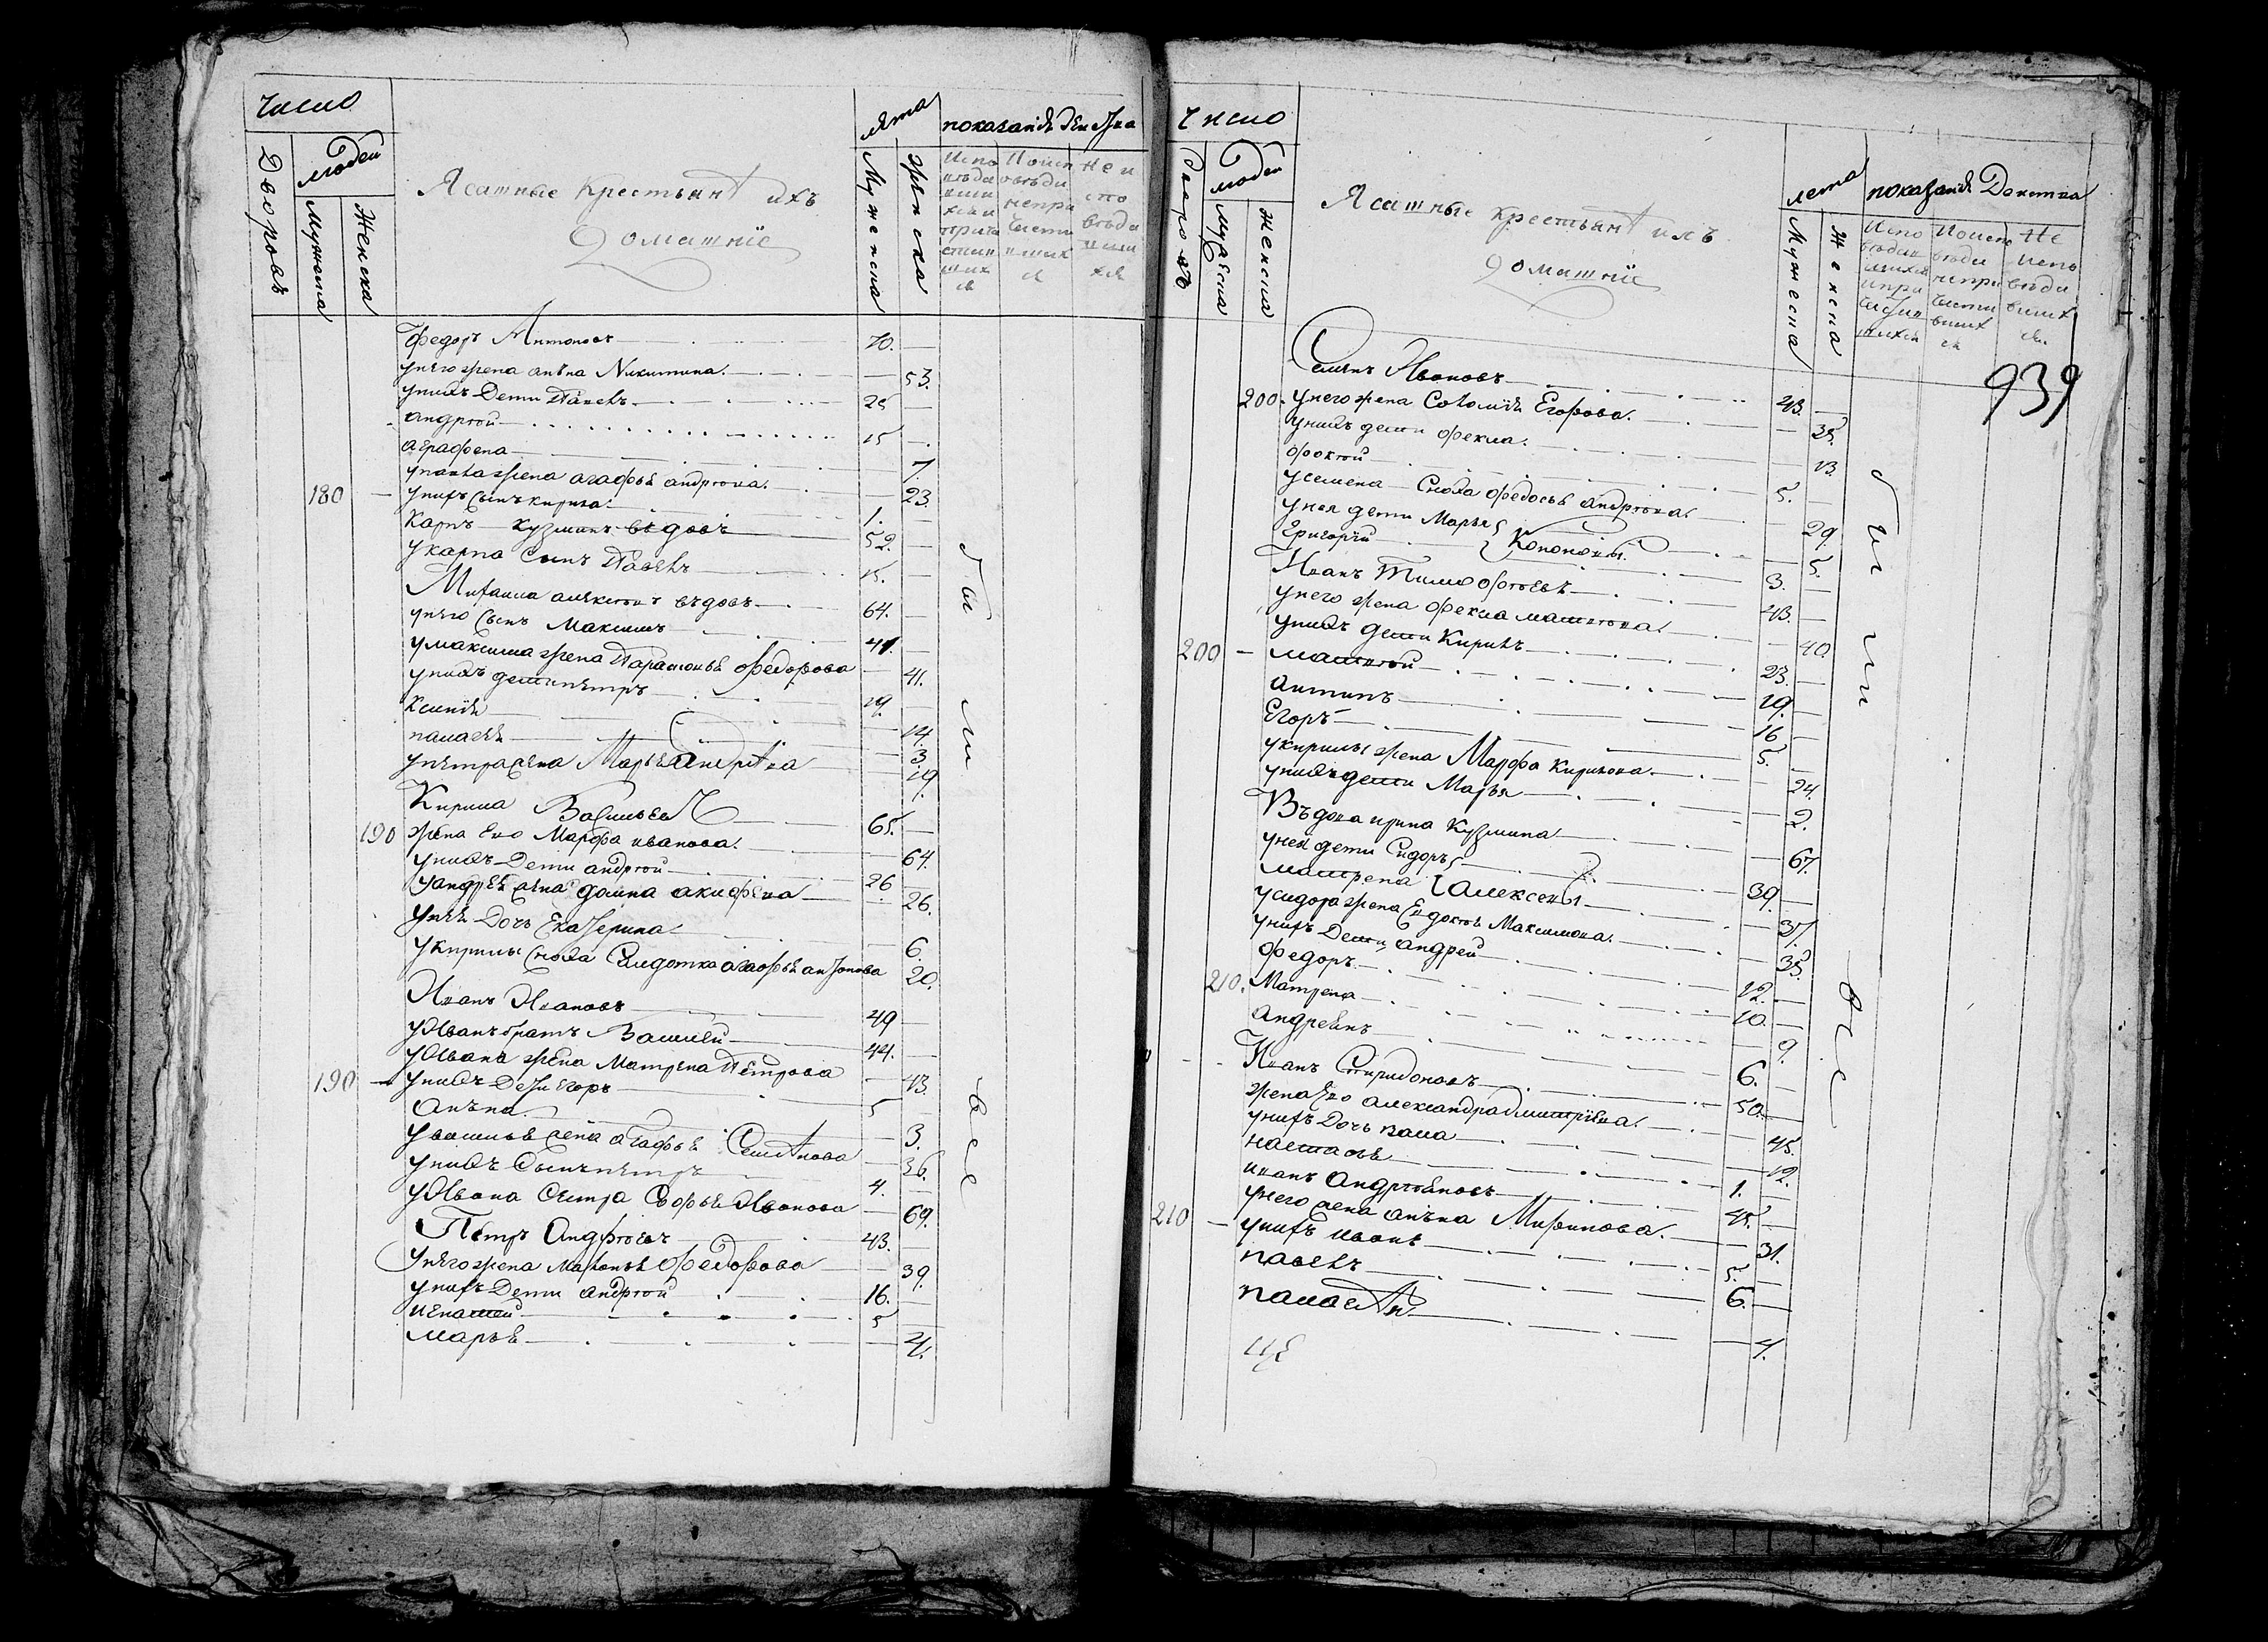 число
лета
показаніе действа
Дворовъ
людей
Мужеска
Женска
Ясашные крестьянѣ ихъ
домашніе
Мужеска
женска
Испо
ведав
шихся и
прича
стив
ших
ся
Поисп
оведи
непри
части
вших
ся
Не и
спо
веди
вши
хся
Федоръ Антоновъ 70.
у него жена анъна Никитина 53.
у нихъ Дети Павелъ 25
андрей 15
аграфена 7.
у павла жена агафья андреева 23.
180 у нихъ сынъ кирила 1.
Карпъ кузминъ въдовъ 52.
у карпа сынъ Павелъ 15.
Михаила алексеевъ въдовъ 64.
у него сынъ Максимъ 41.
у максима жена Парасковья Федорова 41.
у нихъ дети петръ 19.
ксения 14.
палагея 3.
у петра жена Марья Андреева 19.
Кирила Васильевъ 65.
190 жена Ево Марфа иванова 64.
у нихъ Дети андрей 26
у андрея жена домна акифева 26.
у нея Дочь Екатерина 6.
у кирилы сноха Салдатка агафья антонова 20.
Иванъ Ивановъ 49
у Ивана братъ Василей 44.
у Ивана жена Матрена Петрова 43.
190 у нихъ Дети егоръ 5
Анъна 3.
у василья жена агафья Семенова 36.
у нихъ Сынъ петръ 4.
у Ивана сестра Софья Иванова 69.
Петръ Андреевъ 43.
у него жена Мавонья Федорова 39.
у нихъ Дети андрей 16.
игнатей 5
марья 4.
были
все
число
лета
показаніе Действа
Дворовъ
людей
мужеска
женска
Ясашные крестьянѣ ихъ
домашніе
Мужеска
женска
Испо
ведав
шихся
и при
части
вшихся
Поиспо
веди
непри
части
вших
ся
Не
Испо
веди
вших
ся.
939
Семенъ Ивановъ 43.
200. у него жена Соломия Егорова 35.
у нихъ дети Фекла 13.
фоктей 5.
у семена Сноха Федосья андреева 29.
у нея дети Марья 5.
Григорей Кононовы. 3.
Иванъ Тимофеевъ 43.
у него жена Фекла матвеева 40.
у нихъ дети Кирилъ 23.
200 матвей 19.
антипъ 16
Егоръ 5.
у кирилы жена Марфа Кирилова 24.
у нихъ дети Марья 2.
Въдова ирина Кузмина 67.
у нея дети Сидоръ 39.
матрена алексеевы 37.
у сидора жена Евдокея Максимова 35.
у нихъ Дети андрей 12.
Федоръ 10.
210. Матрена 9.
андреянъ 6.
Иванъ Спиридоновъ 50.
жена ево александра дмитриева 45.
у нихъ Дочь васа 12.
настасья 1.
иванъ андреяновъ 45.
у него жена анъна Миронова 31.
210 у нихъ иванъ 5.
павелъ 6.
палагея 4.
были
все